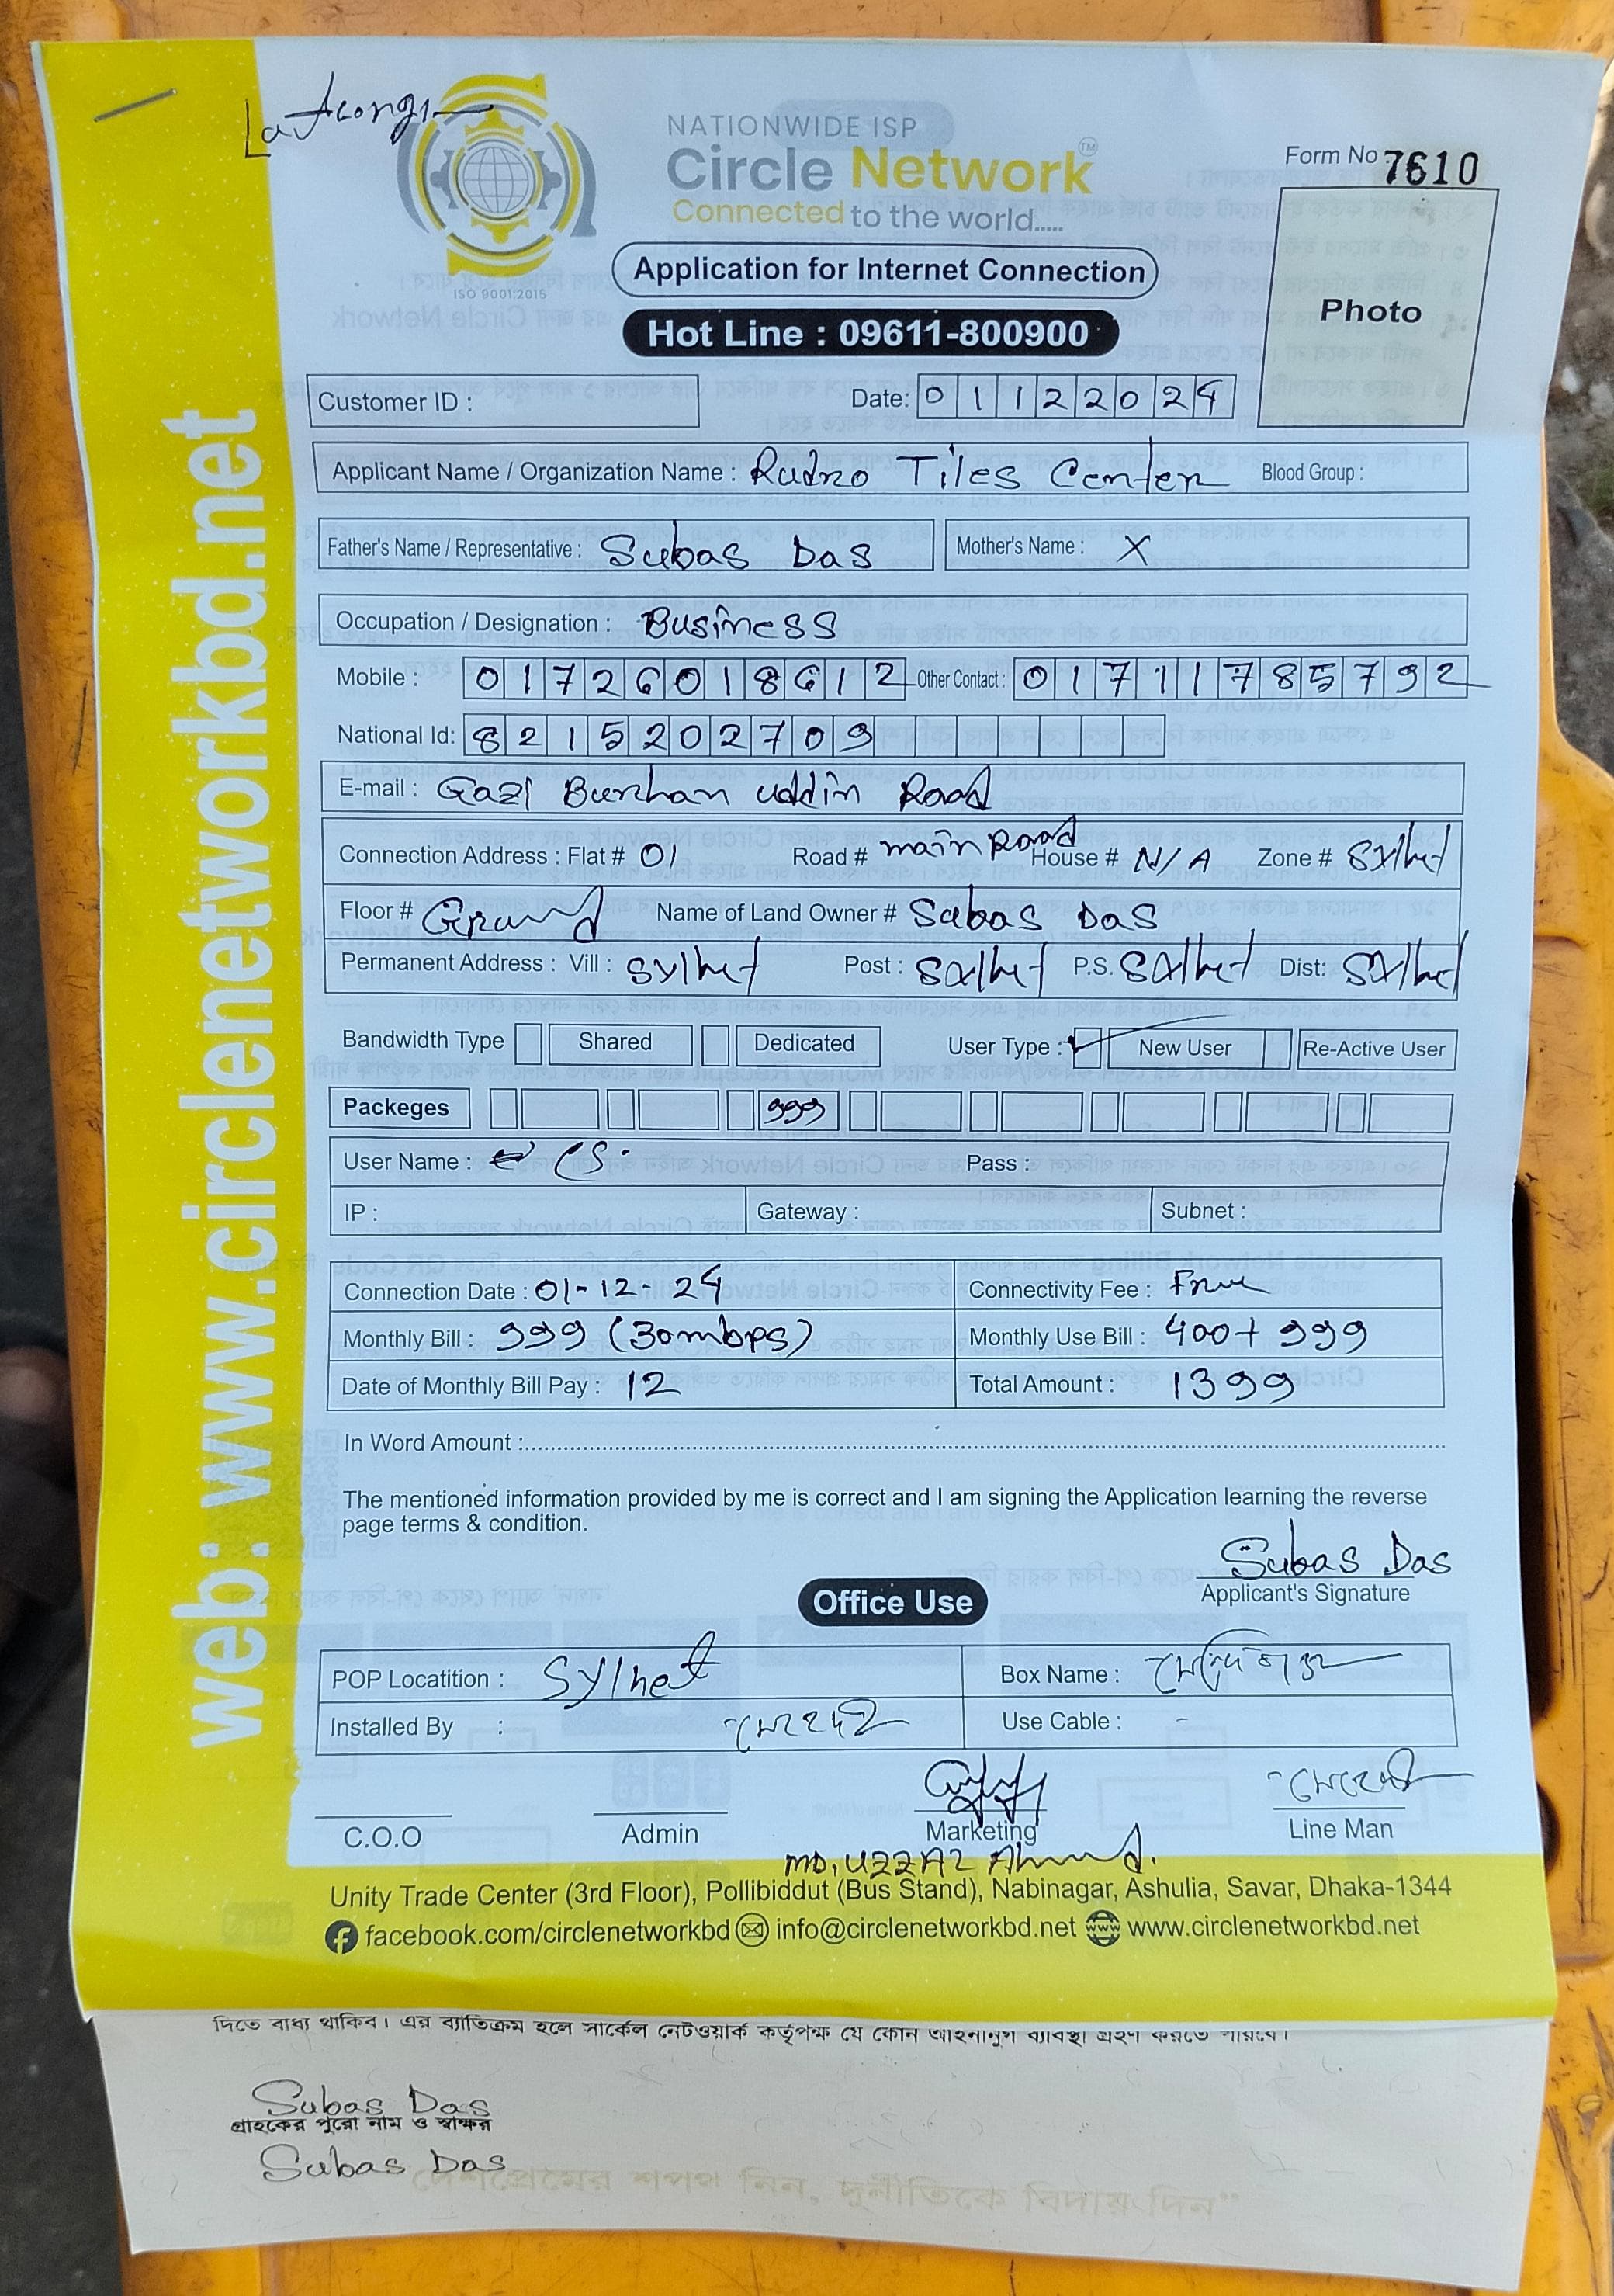 NATIONWIDE ISP
Circle Network™
Connected to the world.....
ISO 9001:2015
Form No 7610
Application for Internet Connection
Photo
Hot Line : 09611-800900
Customer ID :
Date: 01122024
Applicant Name / Organization Name : Rudro Tiles Center Blood Group :
Father's Name / Representative : Subas Das Mother's Name : X
Occupation / Designation : Business
Mobile : 01726018612 Other Contact : 01711785792
National Id: 8215202709
E-mail : Gazi Burhan uddin Road
Connection Address : Flat # 01 Road # main Road House # N/A Zone # Sylhet
Floor # Grund Name of Land Owner # Subas Das
Permanent Address : Vill : Sylhet Post : Sylhet P.S. Sylhet Dist: Sylhet
Bandwidth Type Shared Dedicated User Type : New User Re-Active User
Packeges 999
User Name : CS. Pass :
IP : Gateway : Subnet :
Connection Date : 01-12-24 Connectivity Fee : Free
Monthly Bill : 999 (30mbps) Monthly Use Bill : 400+999
Date of Monthly Bill Pay : 12 Total Amount : 1399
In Word Amount :
The mentioned information provided by me is correct and I am signing the Application learning the reverse
page terms & condition.
Subas Das
Applicant's Signature
Office Use
POP Locatition : Sylhet Box Name :
Installed By : Use Cable : -
C.O.O Admin Marketing Line Man
MD. UZZAL Ahmed.
Unity Trade Center (3rd Floor), Pollibiddut (Bus Stand), Nabinagar, Ashulia, Savar, Dhaka-1344
facebook.com/circlenetworkbd info@circlenetworkbd.net www.circlenetworkbd.net
web: www.circlenetworkbd.net
দিতে বাধ্য থাকিব। এর ব্যতিক্রম হলে সার্কেল নেটওয়ার্ক কর্তৃপক্ষ যে কোন আইনানুগ ব্যবস্থা গ্রহণ করতে পারবে।
Subas Das
গ্রাহকের পুরো নাম ও স্বাক্ষর
Subas Das
দেশপ্রেমের শপথ নিন, দুর্নীতিকে বিদায় দিন"